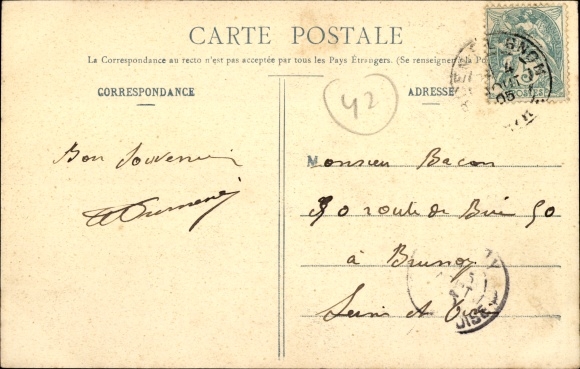 CARTE POSTALE
La Correspondance au recto n'est pas acceptée par tous les Pays Étrangers. (Se renseigner à la Po
CORRESPONDANCE
ADRESSE
42
Bon Souvenir
Monsieur Bacon
50 route de Brie 50
à Brunoy
Seine et Oise
POSTES
05
OISE